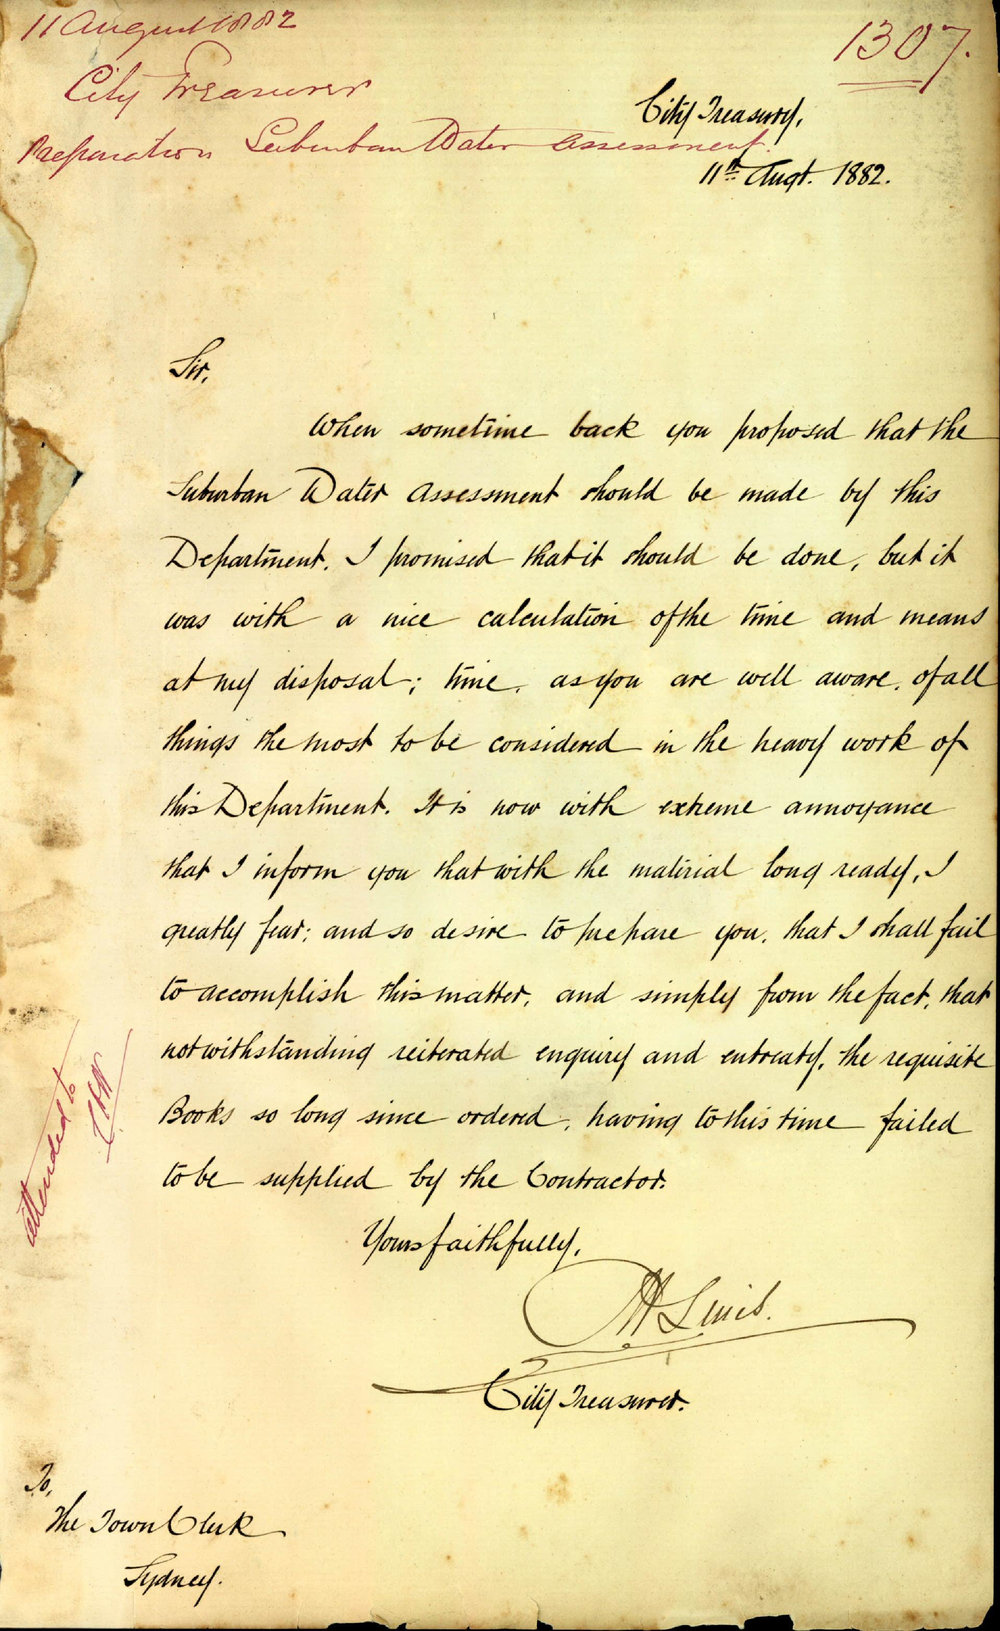 11 August 1882
1307.
City Treasurer
Preparation Suburban Water Assessment.
City Treasury,
11th Augt. 1882.
Sir,
When sometime back you proposed that the
Suburban Water Assessment should be made by this
Department, I promised that it should be done, but it
was with a nice calculation of the time and means
at my disposal; time, as you are well aware, of all
things the most to be considered in the heavy work of
this Department. It is now with extreme annoyance
that I inform you that with the material long ready, I
greatly fear; and so desire to prepare you, that I shall fail
to accomplish this matter, and simply from the fact, that
notwithstanding reiterated enquiry and entreaty, the requisite
Books so long since ordered, having to this time failed
to be supplied by the Contractor.
Yours faithfully,
City Treasurer.
To,
The Town Clerk
Sydney.
attended to